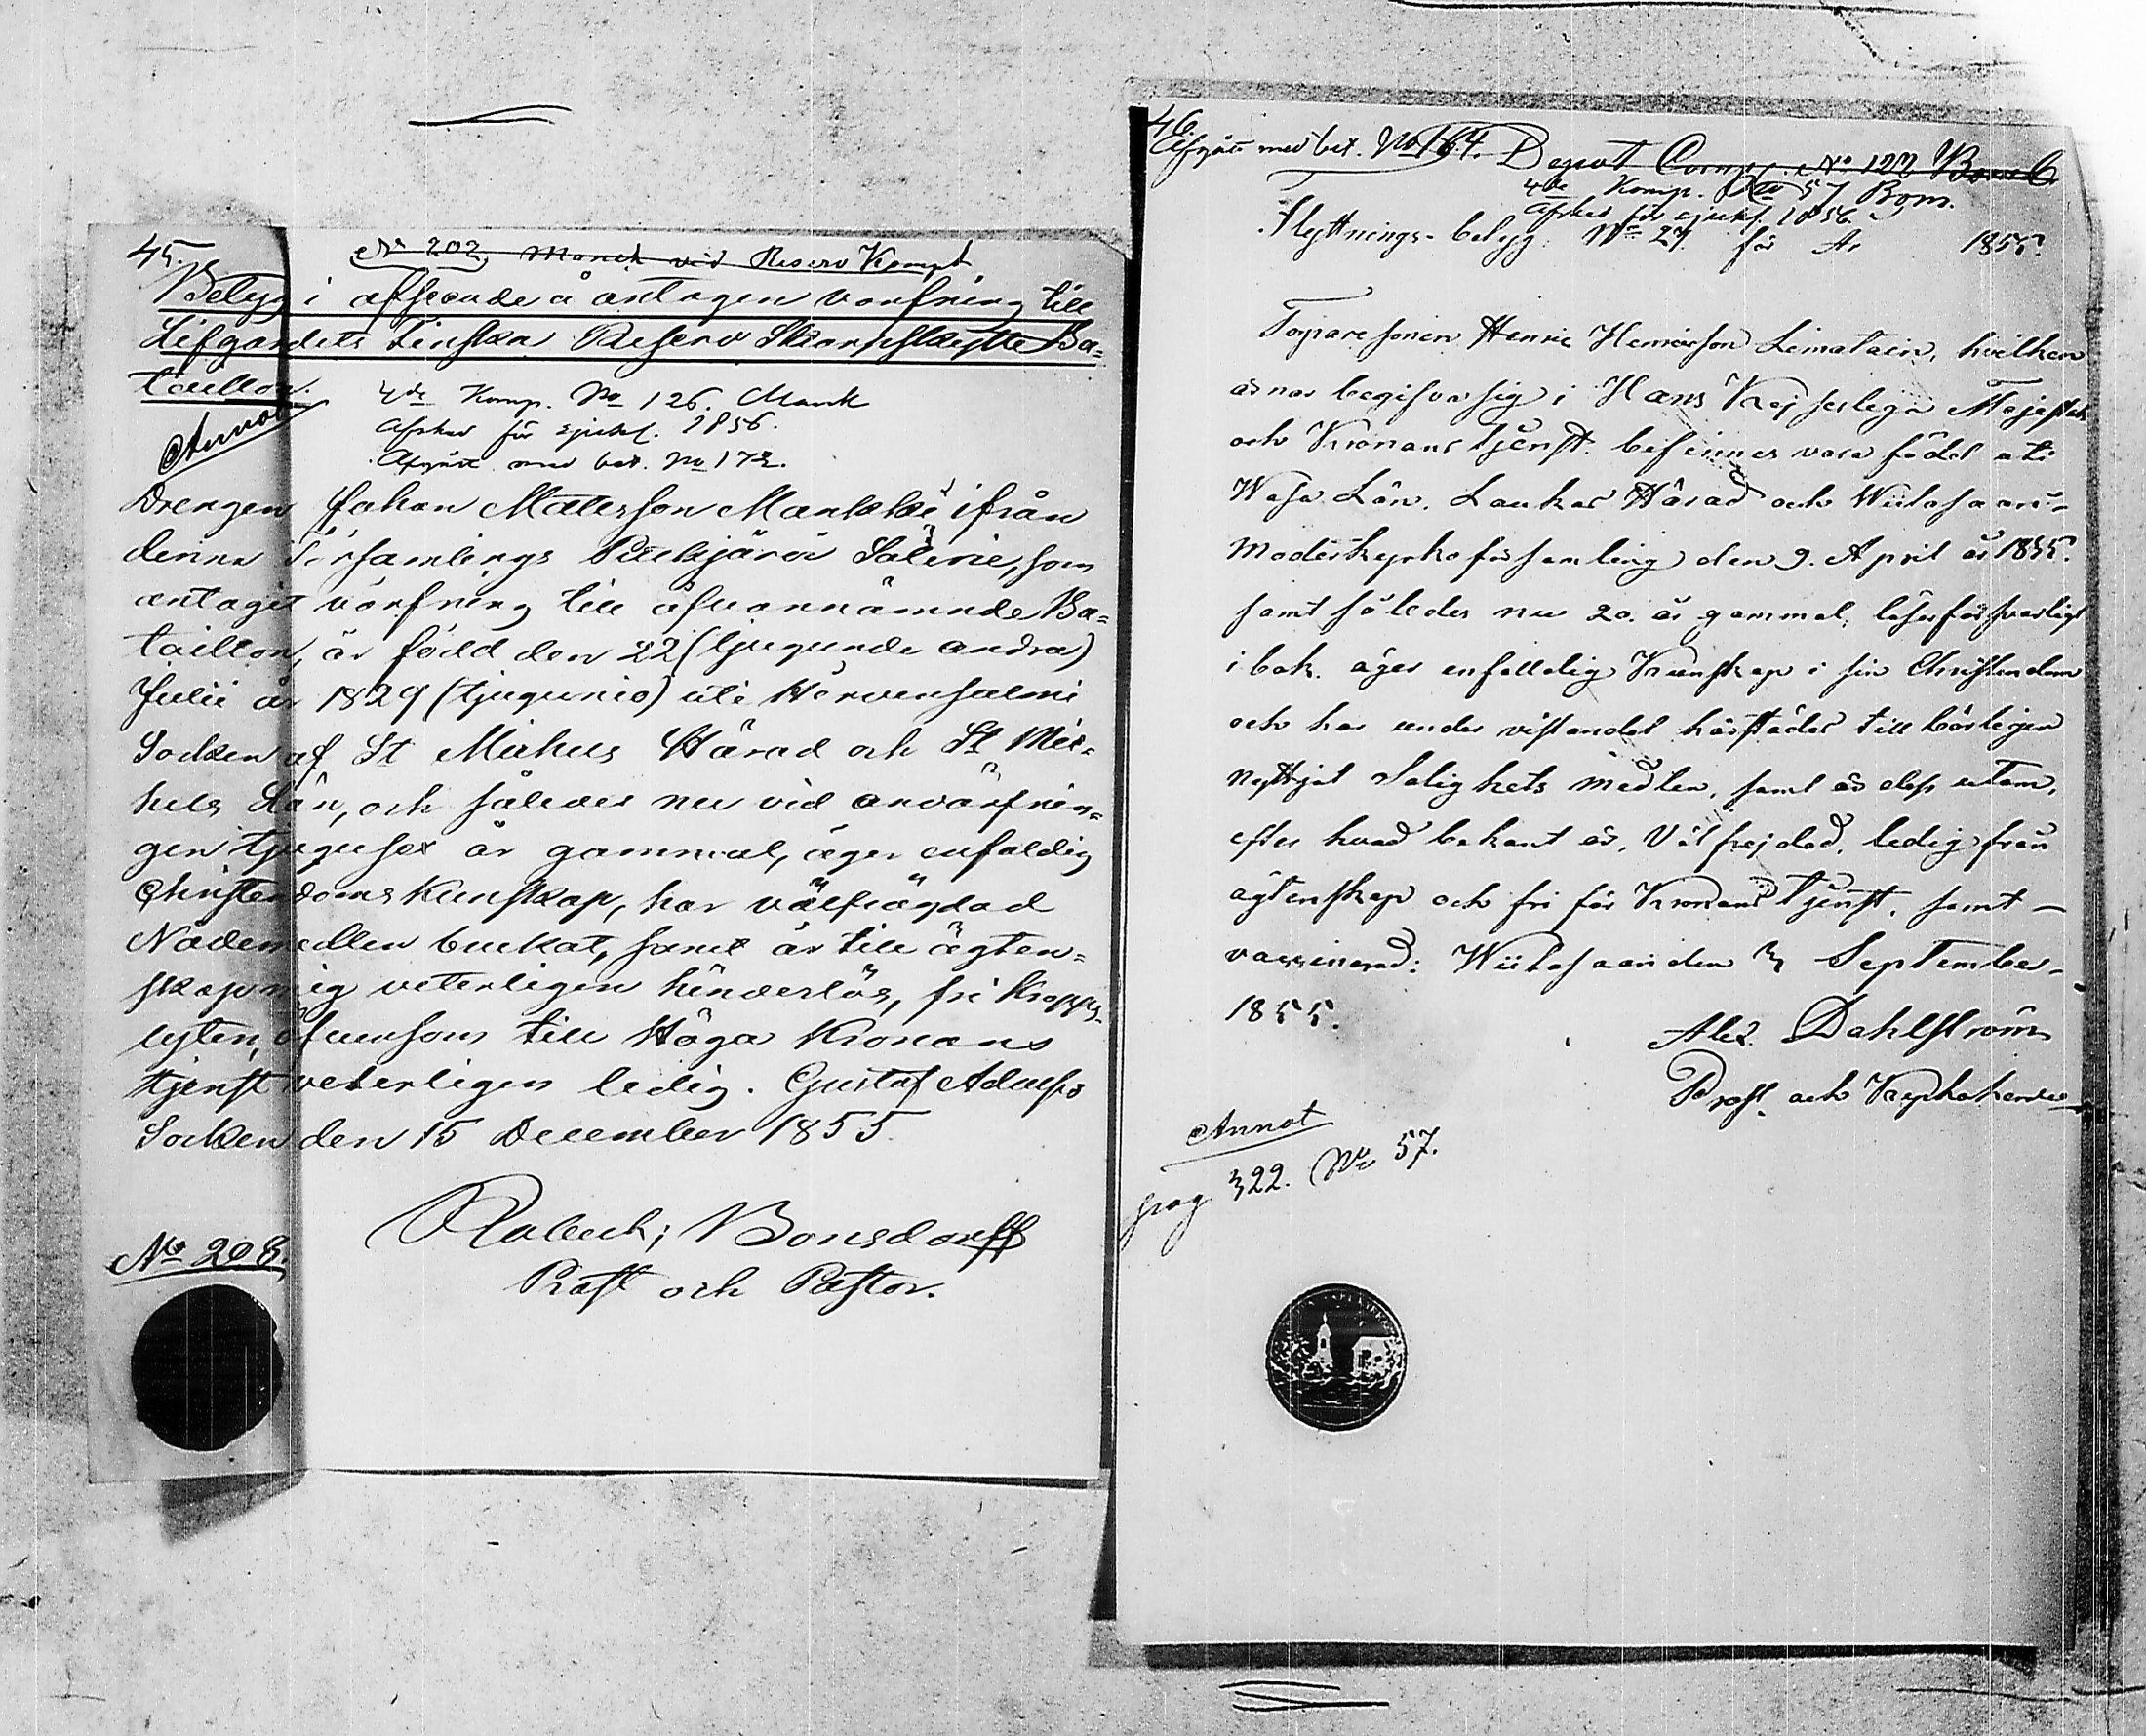 45.
No 202, Manck vid Reserv Kompt
Belyg i afseende å antagen värfning till
Lifgardets Finska Reserv Skarpskytte Ba=
taillon.
Annot
4de Komp. No 126. Mank
Afsked för sjukl. 1856.
Afgått med bet. No 172.
Drengen Johan Matsson Mankki ifrån
denna Församlings Puckjärvi Soldat, som
antagit värfning till ofvannämnde Ba=
taillon, är född den 22 (tjugunde andra)
Julii år 1829 (tjugunio) uti Hirvensalmi
Socken af St Michels Härad och St Mic=
hels Län, och således nu vid anvärfnin=
gen tjugusex år gammal, äger enfaldig
Christendoms Kunskap, har välfrägdad
Nådemedlen brukat, samt är till ägten=
skap mig veterligen hinderlös, fri Kropps-
lyten, äfvensom till Höga Kronans
tjenst veterligen ledig. Gustaf Adolfs
Socken den 15 December 1855.
Robert; Bonsdorff
Prost och Pastor.
No 208.
46.
Afgått med bet. No 164. Depot Comp. No 122
4de Komp. No 57 Bom.
Afsked för sjukl. 1856.
Flyttnings-belyg: No 27. för År 1855.
Torpare sonen Henric Henricsson Limatain, hvilken
ärnar begifva sig i Hans Kejserliga Majestäts
och Kronans tjenst. befinnes vara född uti
Wasa Län, Laukas Härad och Wiitasaari-
Moderkyrkoförsamling den 9. April år 1835.
samt således nu 20. år gammal, läser försvarligt
i bok. äger enfalldig Kunskap i sin Christendom
och har under vistandet härstädes tillbörligen
nyttjat Salighets medlen, samt är dess utom,
efter hvad bekant är, Välfrejdad, ledig från
ägtenskap och fri för Kronans tjenst, samt -
vaccinerad: Wiitasaari den 3 September-
1855.
Alex. Dahlström
Prost och Kyrkoherde
Annot
pag 322. No 57.